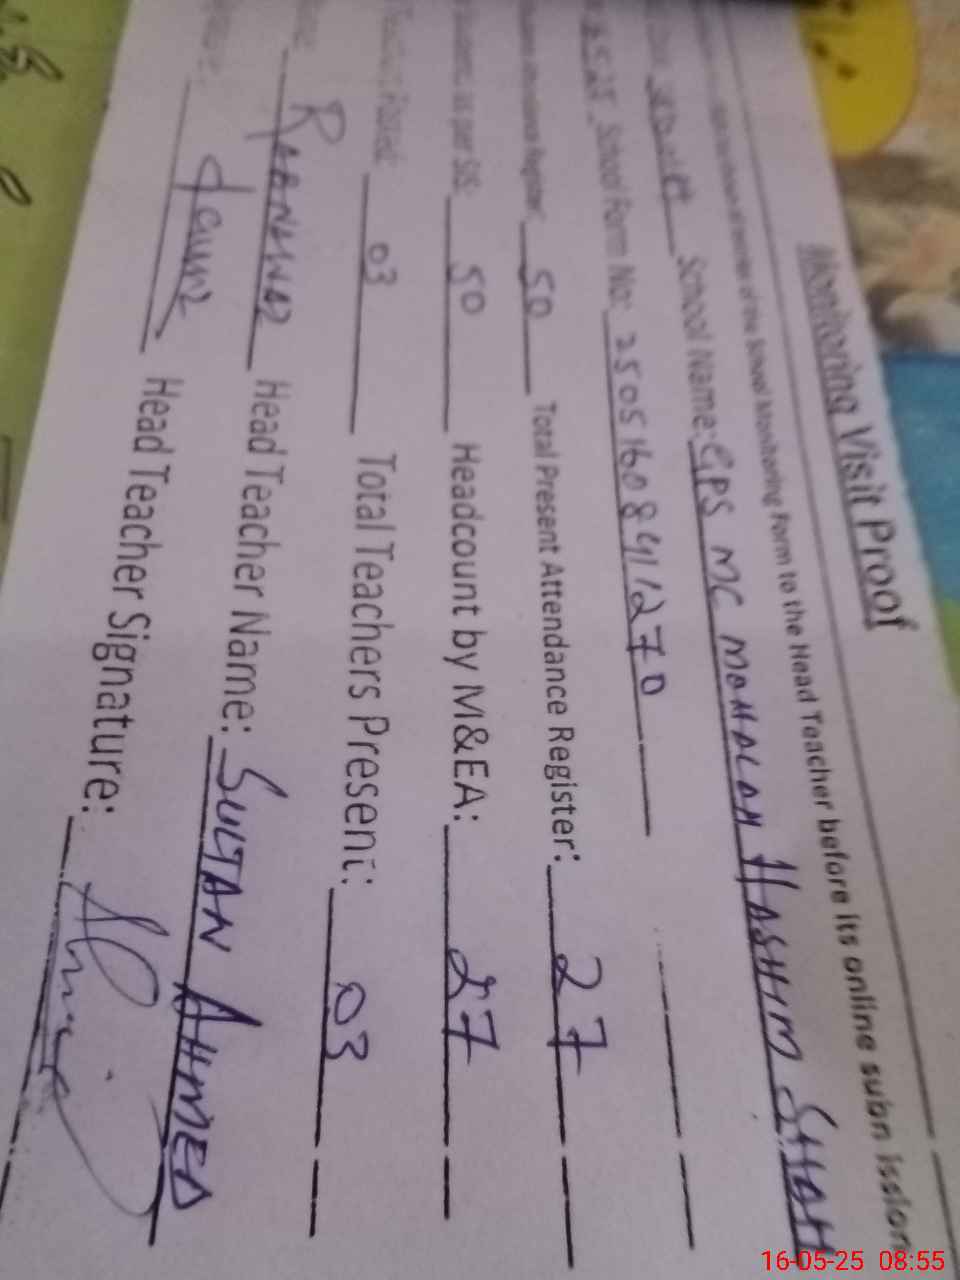 Monitoring Visit Proof
of the School Monitoring Form to the Head Teacher before its online submission
School Name: GPS MC MOHALAH HASHIM SHAH
School Form No: 2505160841270
Register: 50 Total Present Attendance Register: 27
as per SIS: 50 Headcount by M&EA: 27
Posted: 03 Total Teachers Present: 03
Head Teacher Name: SULTAN AHMED
Head Teacher Signature:
16-05-25 08:55